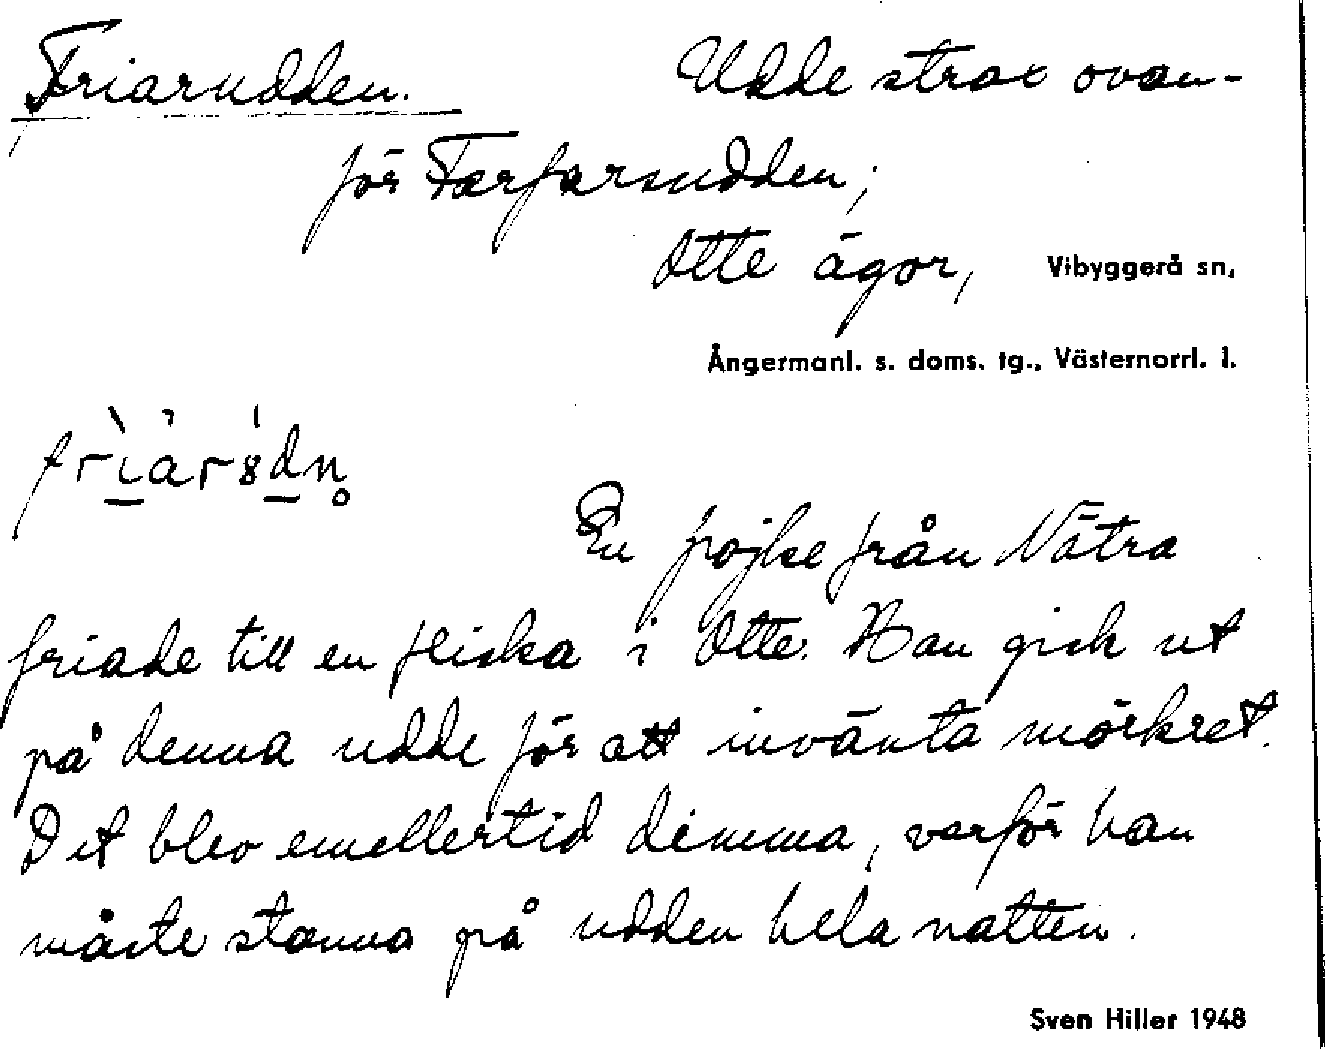 Friarudden. Udde strax ovan-
för Farfarsudden;
Otte ägor, Vibyggerå sn,
Ångermanl. s. doms. tg., Västernorrl. l.
En pojke från Nätra
friade till en flicka i Otte. Han gick ut
på denna udde för att invänta mörkret.
Det blev emellertid dimma, varför han
måste stanna på udden hela natten.
Sven Hiller 1948